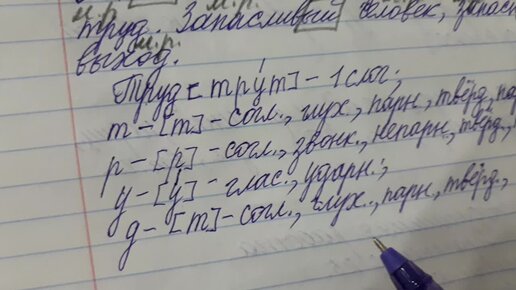 м.р. м.р.
труд. Запасливый человек, запасн
выход. м.р.
Труд [тру́т] - 1 слог.
т - [т] - согл., глух., парн., твёрд., пар
р - [р] - согл., звонк., непарн., твёрд.,
у - [у́] - глас., ударн.,
д - [т] - согл., глух., парн., твёрд.,